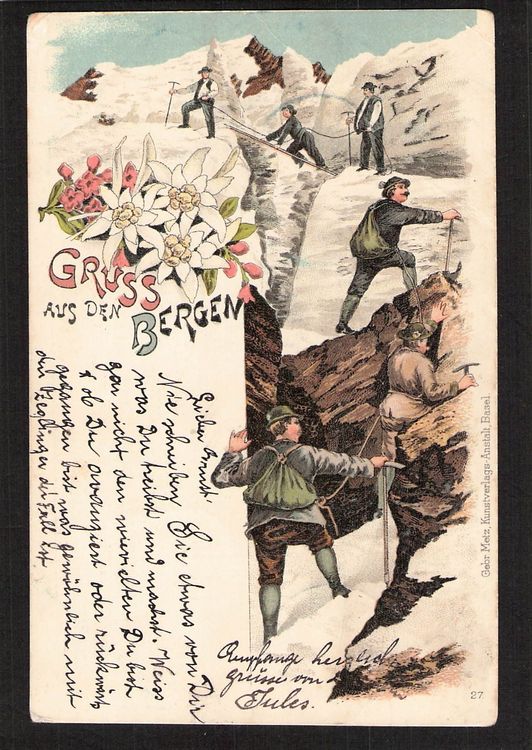 GRUSS
AUS DEN
BERGEN
Lieber Ernst
Nie schreiben Sie etwas von Dir
was Du treibst und machst. Weiss
gar nicht den wievielten Du bist
ob Du avanziert oder rückwärts
gegangen bist was gewöhnlich mit
die der Fall ist
Empfange herzlich
grüsse von
Jules.
Gebr. Metz, Kunstverlags-Anstalt, Basel.
27